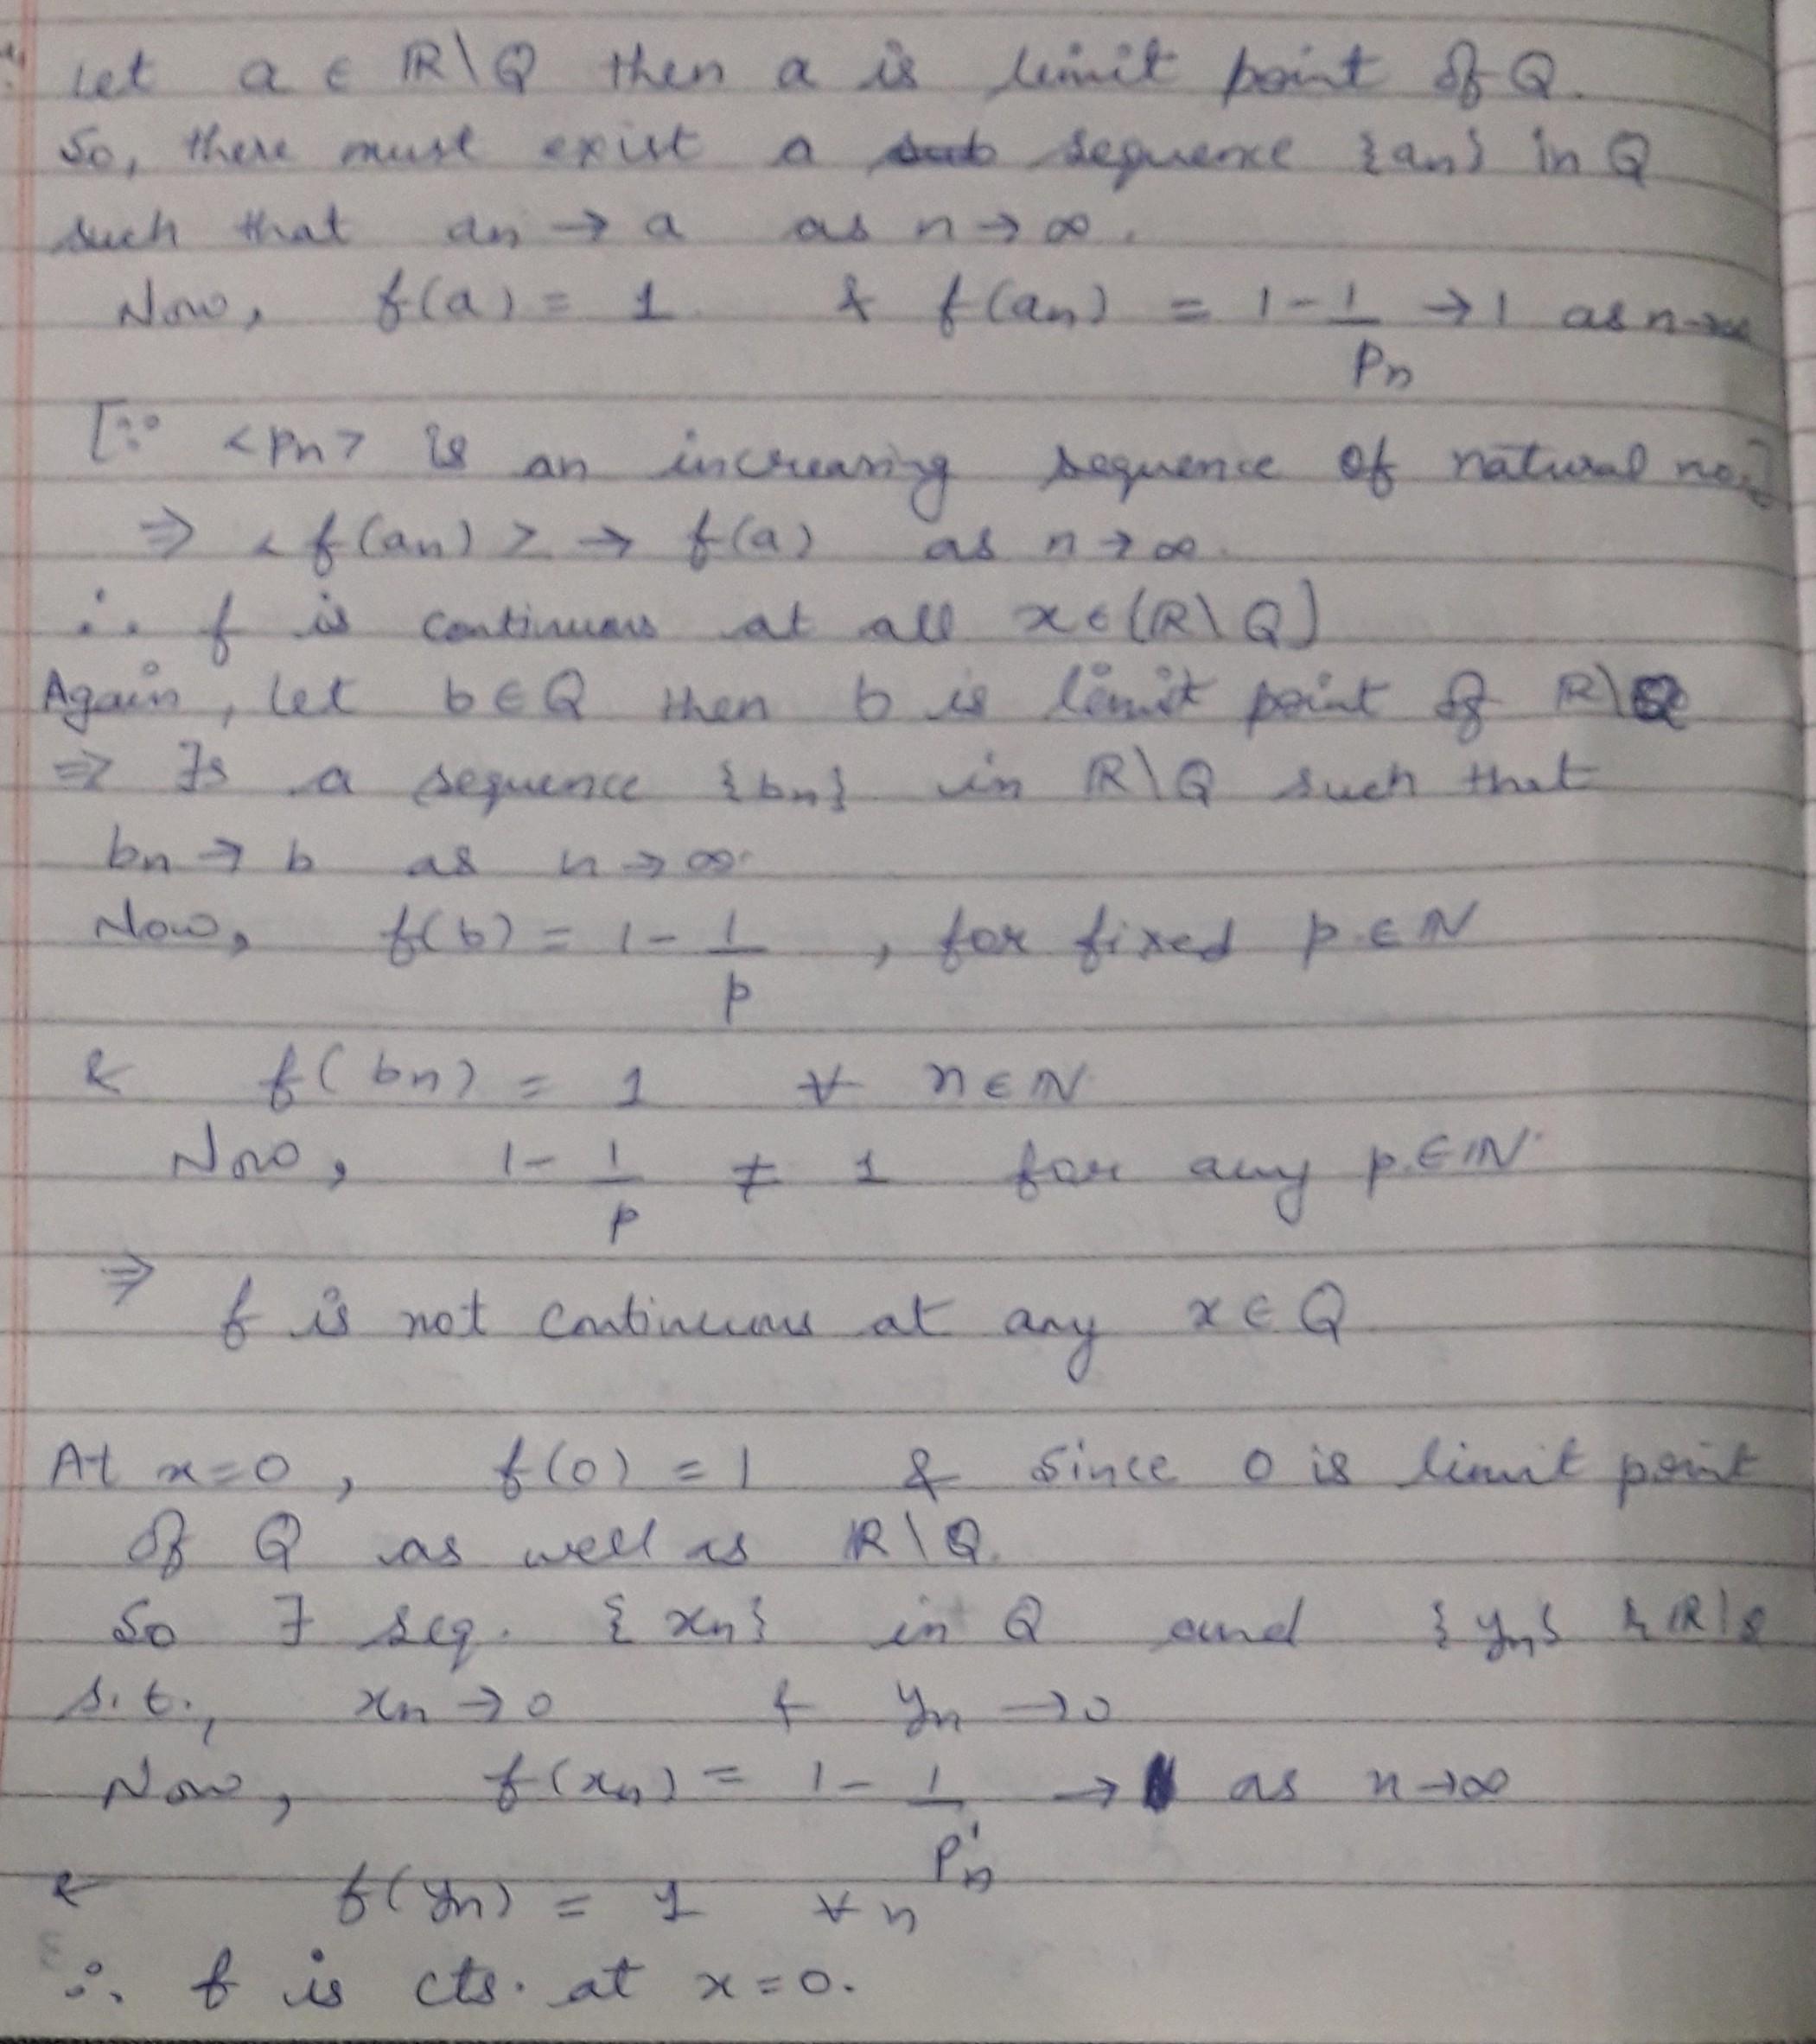 Let a ∈ ℝ\Q then a is limit point of Q.
So, there must exist a sequence {an} in Q
such that an → a as n → ∞.
Now, f(a) = 1 & f(an) = 1 - 1/Pn → 1 as n→∞
[∵ <Pn> is an increasing sequence of natural no.]
⇒ <f(an)> → f(a) as n → ∞.
∴ f is continuous at all x ∈ (ℝ\Q)
Again, let b ∈ Q then b is limit point of ℝ\Q
⇒ ∃s a sequence {bn} in ℝ\Q such that
bn → b as n → ∞.
Now, f(b) = 1 - 1/p , for fixed p ∈ ℕ
& f(bn) = 1 ∀ n ∈ ℕ
Now, 1 - 1/p ≠ 1 for any p ∈ ℕ
⇒ f is not continuous at any x ∈ Q
At x=0, f(0) = 1 & since 0 is limit point
of Q as well as ℝ\Q.
So ∃ seq. {xn} in Q and {yn} ℝ\Q
s.t., xn → 0 & yn → 0
Now, f(xn) = 1 - 1/P'n → 1 as n → ∞
& f(yn) = 1 ∀ n
∴ f is cts. at x=0.